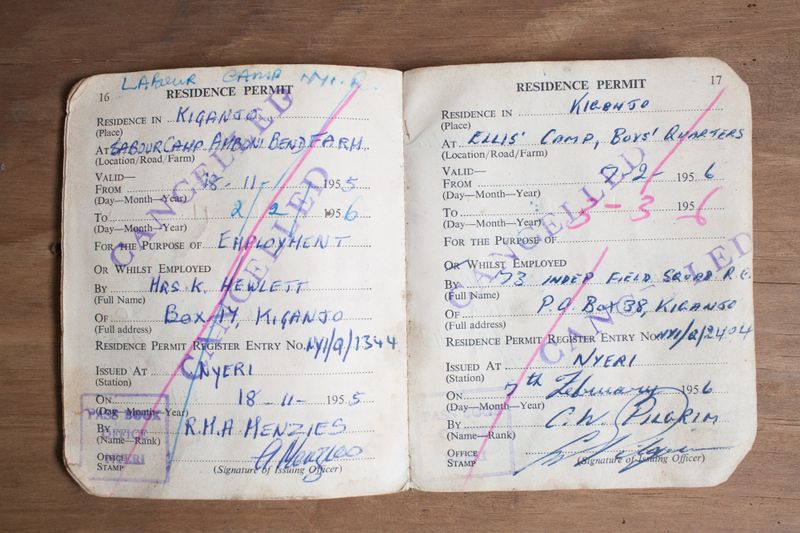 LABOUR CAMP NYI.
16
RESIDENCE PERMIT
RESIDENCE IN KIGANJO
(Place)
AT LABOUR CAMP. AMBONI BEND FARM.
(Location/Road/Farm)
VALID—
FROM 18-11- 1955
(Day—Month—Year)
TO 2/2 1956
(Day—Month—Year)
FOR THE PURPOSE OF EMPLOYMENT
OR WHILST EMPLOYED
BY MRS. K. HEWLETT
(Full Name)
OF BOX 17, KIGANJO
(Full address)
RESIDENCE PERMIT REGISTER ENTRY NO. NYI/Q/1344
ISSUED AT NYERI
(Station)
ON 18-11- 1955
(Day—Month—Year)
BY R.H.A MENZIES
(Name—Rank)
OFFICE
STAMP
(Signature of Issuing Officer)
CANCELLED
CANCELLED
PASS BOOK
OFFICE
NYERI
17
RESIDENCE PERMIT
RESIDENCE IN KIGANJO
(Place)
AT ELLIS' CAMP, BOYS' QUARTERS
(Location/Road/Farm)
VALID—
FROM 7-2- 1956
(Day—Month—Year)
TO 3-3 1956
(Day—Month—Year)
FOR THE PURPOSE OF
OR WHILST EMPLOYED
BY 73 INDEP FIELD SQUAD R.E.
(Full Name)
OF P.O BOX 38, KIGANJO
(Full address)
RESIDENCE PERMIT REGISTER ENTRY NO. NYI/Q/2404
ISSUED AT NYERI
(Station)
ON 7th February 1956
(Day—Month—Year)
BY C.W. PILGRIM
(Name—Rank)
OFFICE
STAMP
(Signature of Issuing Officer)
CANCELLED
CANCELLED